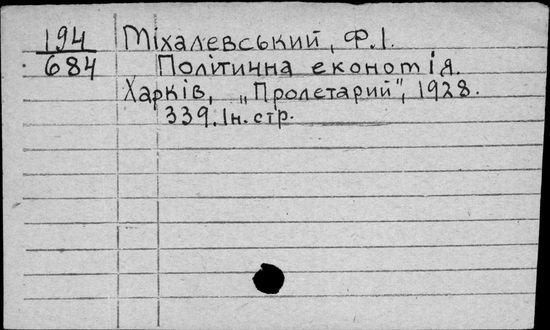 194 Міхалевський, Ф.І.
684 Політична економія.
Харків, „Пролетарий", 1928.
339.Ін. стр.